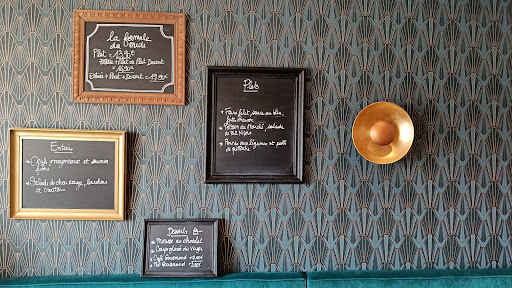 la formule
du
Plat = 13,90€
Entrée + Plat ou Plat Dessert
= 16,90€
Entrée + Plat + Dessert = 19,90€
Entrées
Oeufs mayonnaise et saumon
fumé
Salade de chou rouge, lardons
et croûtons
Plats
Faux filet, sauce au bleu,
frites maison
Poisson du marché, salade
de
Penne aux légumes et pesto
de pistache
Desserts
Mousse au chocolat
Café Gourmand
Thé Gourmand